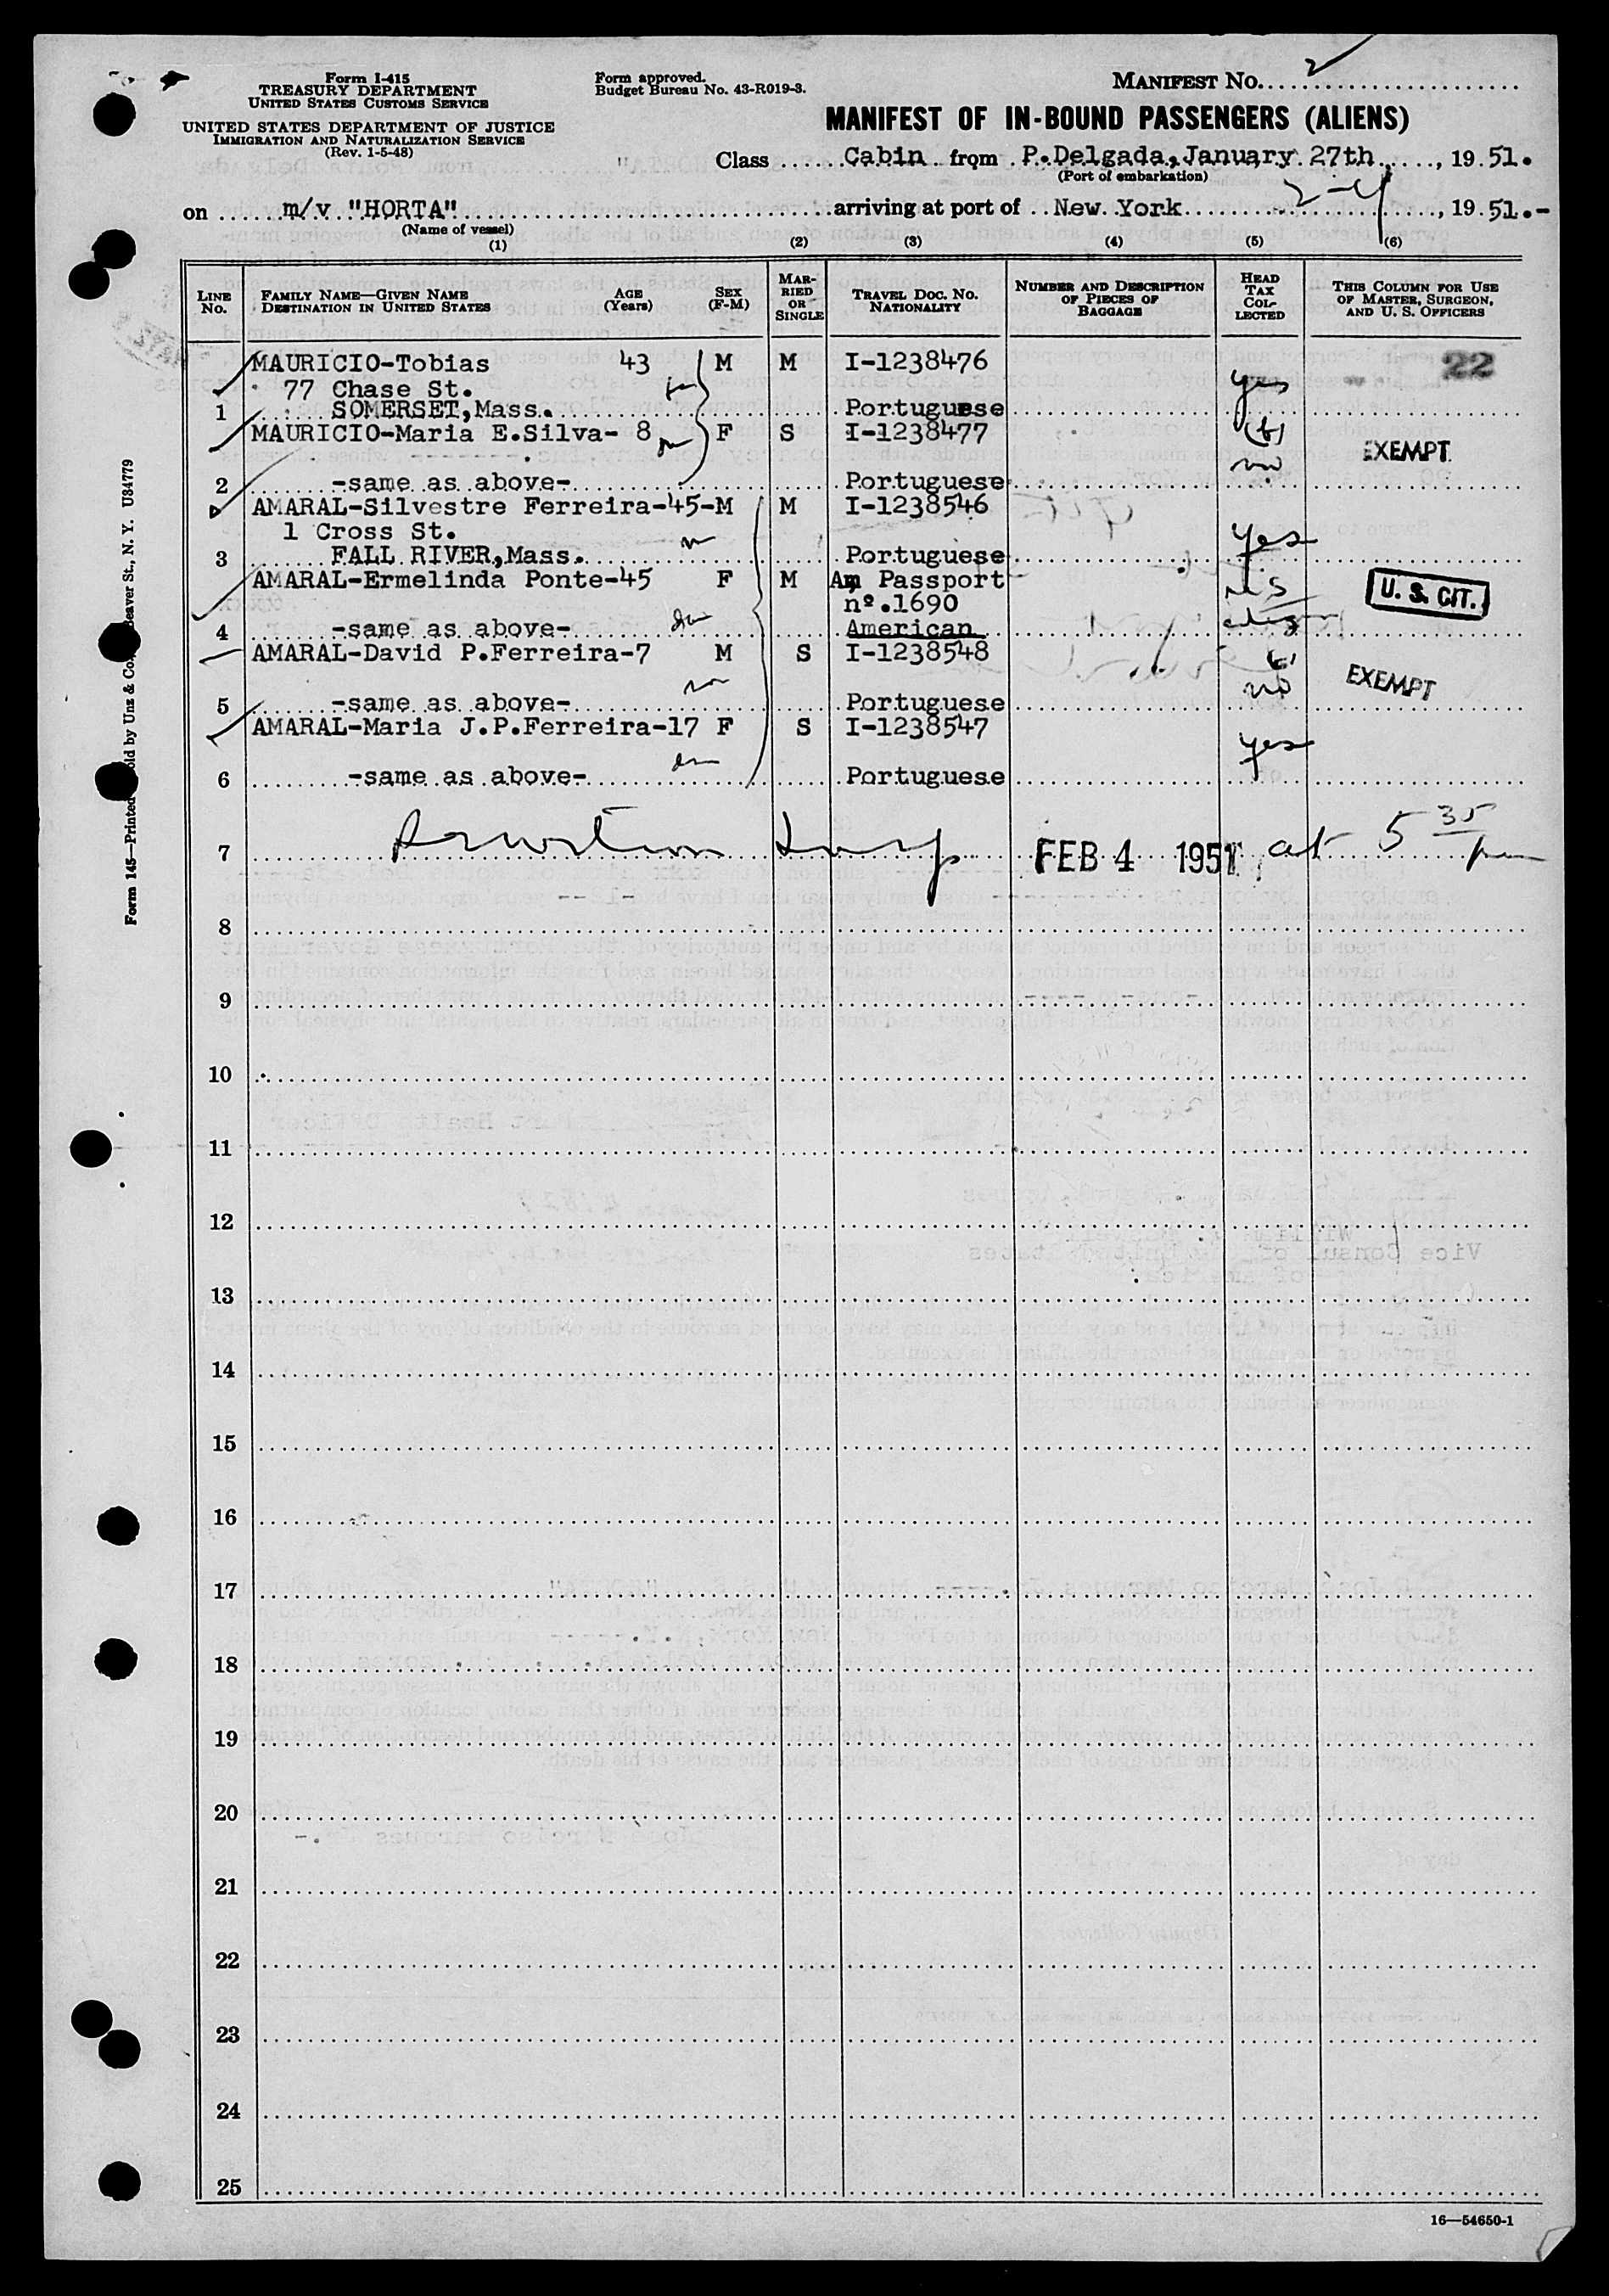 Form I-415
TREASURY DEPARTMENT
UNITED STATES CUSTOMS SERVICE
UNITED STATES DEPARTMENT OF JUSTICE
IMMIGRATION AND NATURALIZATION SERVICE
(Rev. 1-5-48)
Form approved.
Budget Bureau No. 43-R019-3.
MANIFEST No. 2
MANIFEST OF IN-BOUND PASSENGERS (ALIENS)
Class Cabin from P.Delgada, January 27th, 1951.
(Port of embarkation)
on m/v "HORTA" arriving at port of New York 2-4, 1951.-
(Name of vessel)
(1) (2) (3) (4) (5) (6)
LINE No. FAMILY NAME—GIVEN NAME DESTINATION IN UNITED STATES AGE (Years) SEX (F-M) MARRIED OR SINGLE TRAVEL DOC. No. NATIONALITY NUMBER AND DESCRIPTION OF PIECES OF BAGGAGE HEAD TAX COLLECTED THIS COLUMN FOR USE OF MASTER, SURGEON, AND U. S. OFFICERS
MAURICIO-Tobias 43 M M I-1238476 22
77 Chase St. yes
1 SOMERSET,Mass. Portuguese
MAURICIO-Maria E.Silva- 8 F S I-1238477 EXEMPT
no
2 -same as above- Portuguese
AMARAL-Silvestre Ferreira-45-M M I-1238546
1 Cross St. yes
3 FALL RIVER,Mass. Portuguese
AMARAL-Ermelinda Ponte-45 F M Am Passport
nº.1690 U.S. U. S. CIT.
4 -same as above- American
AMARAL-David P.Ferreira-7 M S I-1238548
no EXEMPT
5 -same as above- Portuguese
AMARAL-Maria J.P.Ferreira-17 F S I-1238547
yes
6 -same as above- Portuguese
7 FEB 4 1951 at 5 35 pm
8
9
10
11
12
13
14
15
16
17
18
19
20
21
22
23
24
25
Form 145—Printed
Beaver St., N. Y. U34779
16—54650-1